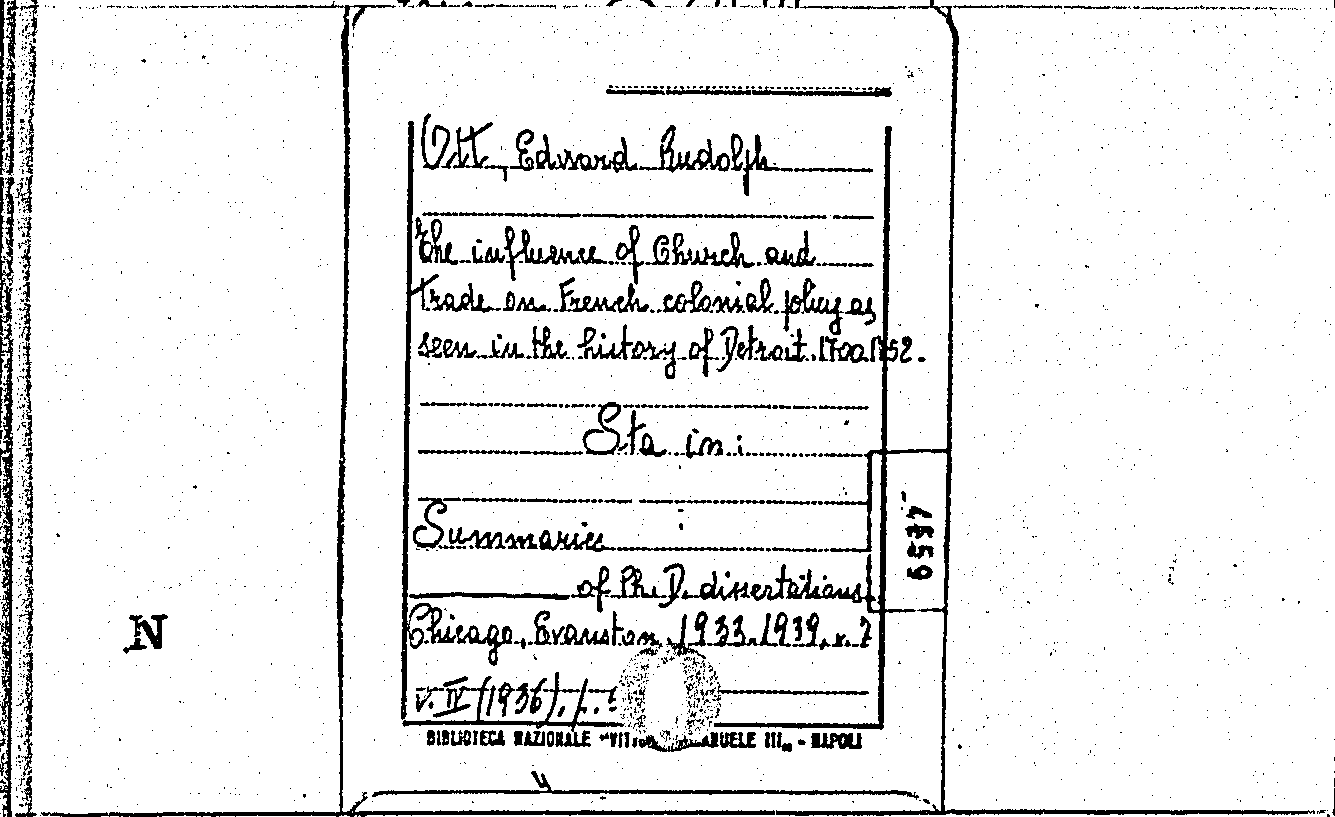 Ott, Edward Rudolph
The influence of Church and
trade on French colonial policy as
seen in the history of Detroit. 1700.1752.
Sta in:
Summaries
of Ph. D. dissertations.
Chicago, Evanston, 1933.1939, v. 7
v. IV (1936),
BIBLIOTECA NAZIONALE "VITTORIO EMANUELE III" - NAPOLI
N